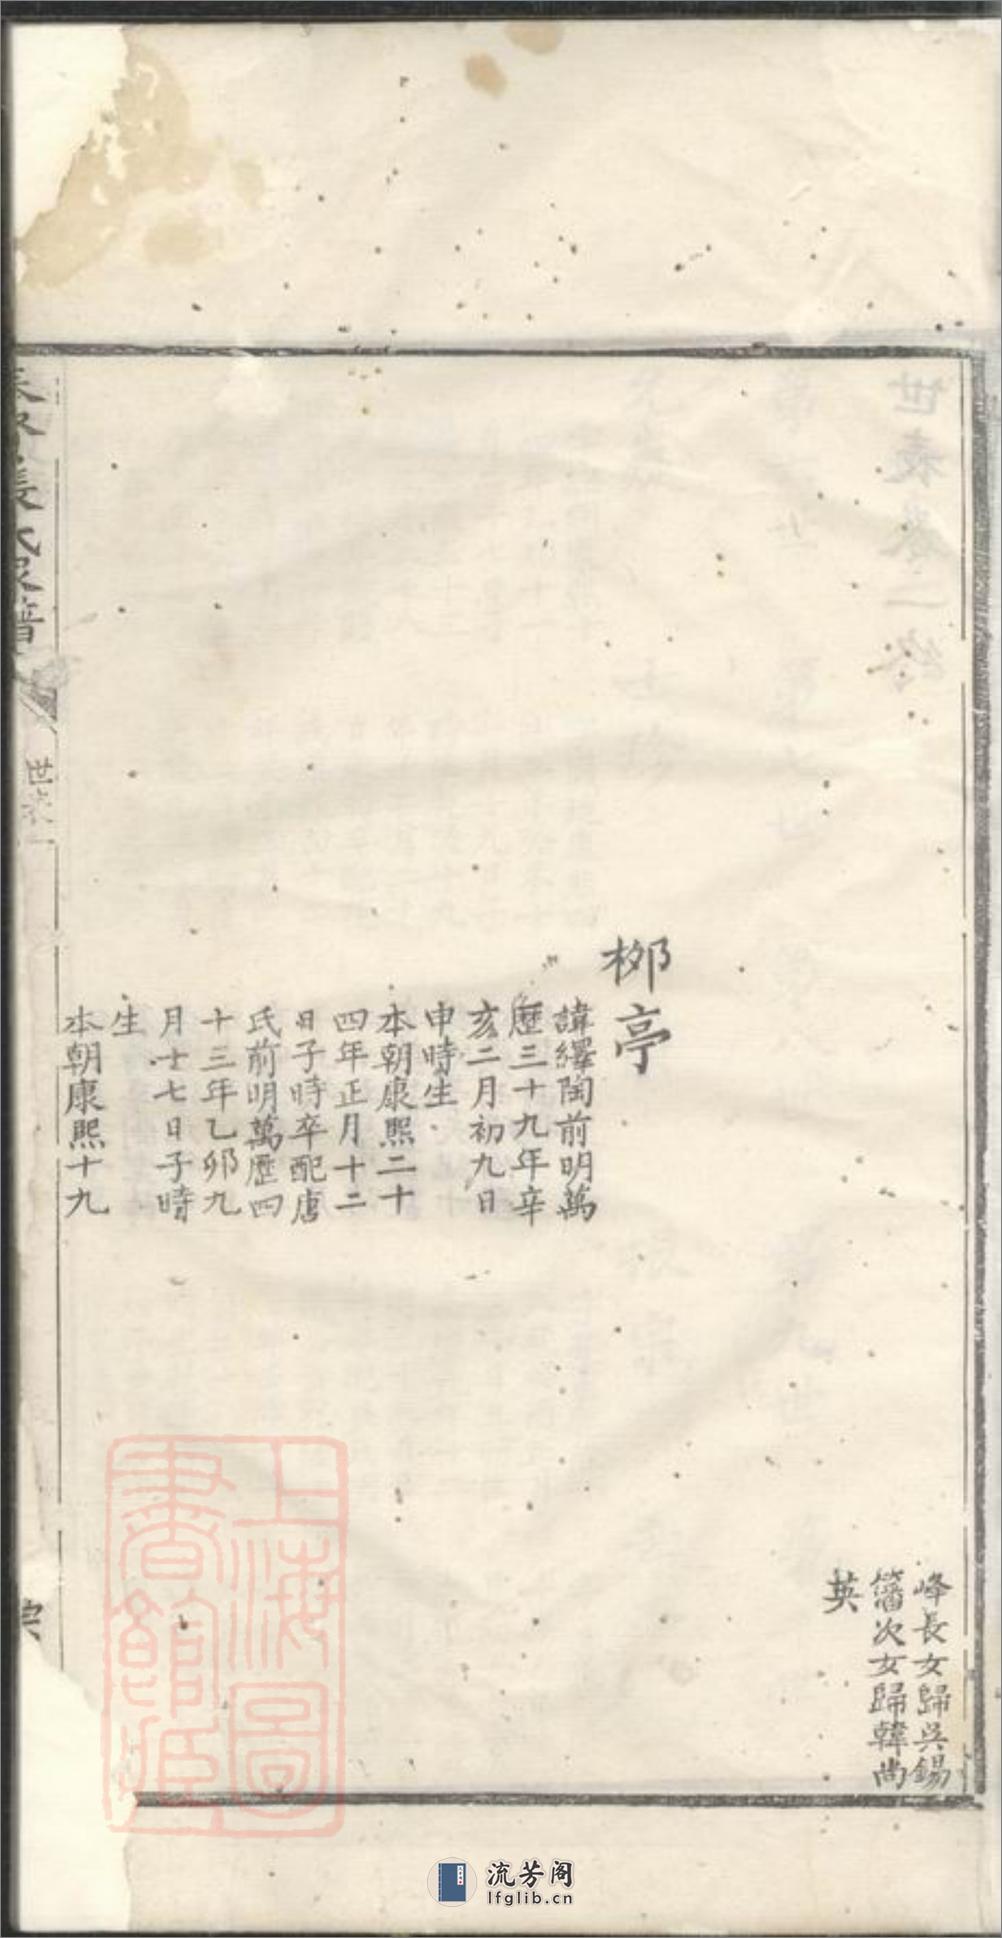 峰長女歸吳錫
籓次女歸韓尚
英
栁亭
諱繹陶前明萬
歷三十九年辛
亥二月初九日
申時生
本朝康熙二十
四年正月十二
日子時卒配唐
氏前明萬歷四
十三年乙卯九
月十七日子時
生
本朝康熙十九
張氏家譜
世表
上海圖
書館藏
流芳阁
lfglib.cn